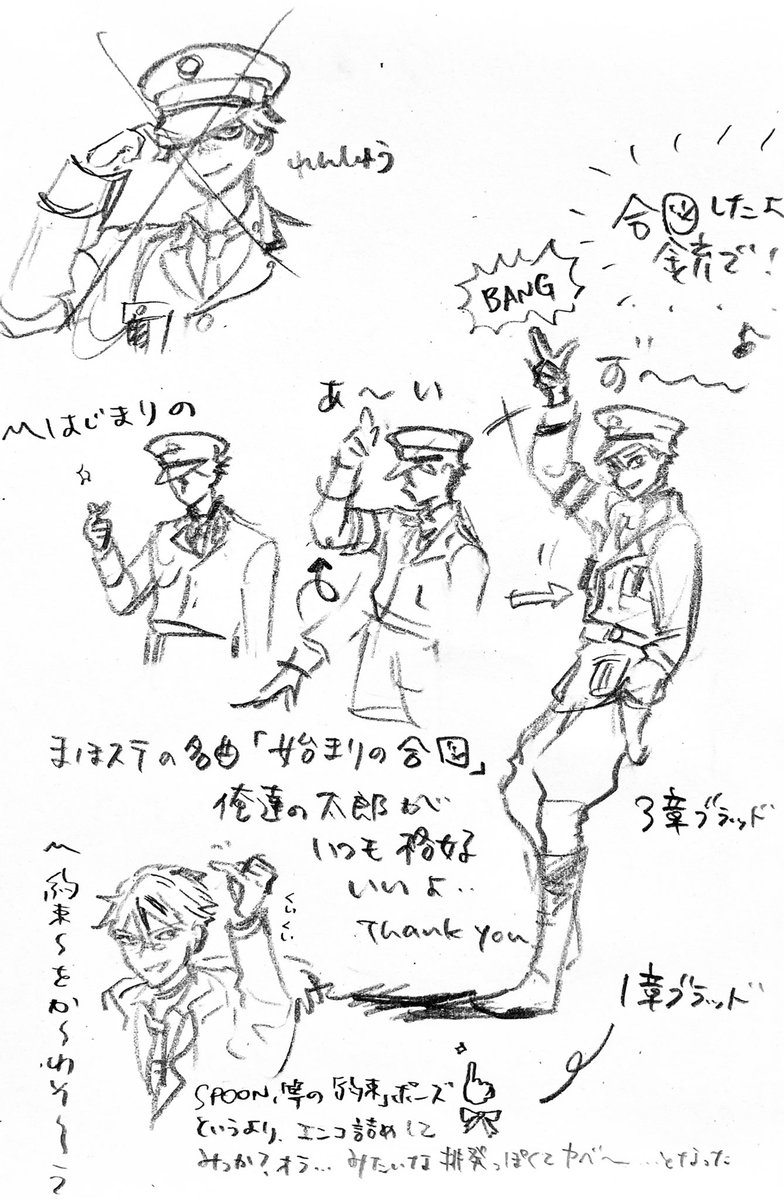 れんしゅう
合図したよ
銃で!
BANG
♪
ず〜〜〜
あ〜い
〽はじまりの
まほステの名曲「始まりの合図」
俺達の太郎が
いつも格好
いいよ..
Thank you
3章ブラッド
〽約束〜をか〜わそ〜う
くいくい
1章ブラッド
SPOON,「等の約束」ポーズ
というより、エンコ詰めして
みっか?オラ… みたいな挑発っぽくてヤベ〜…となった